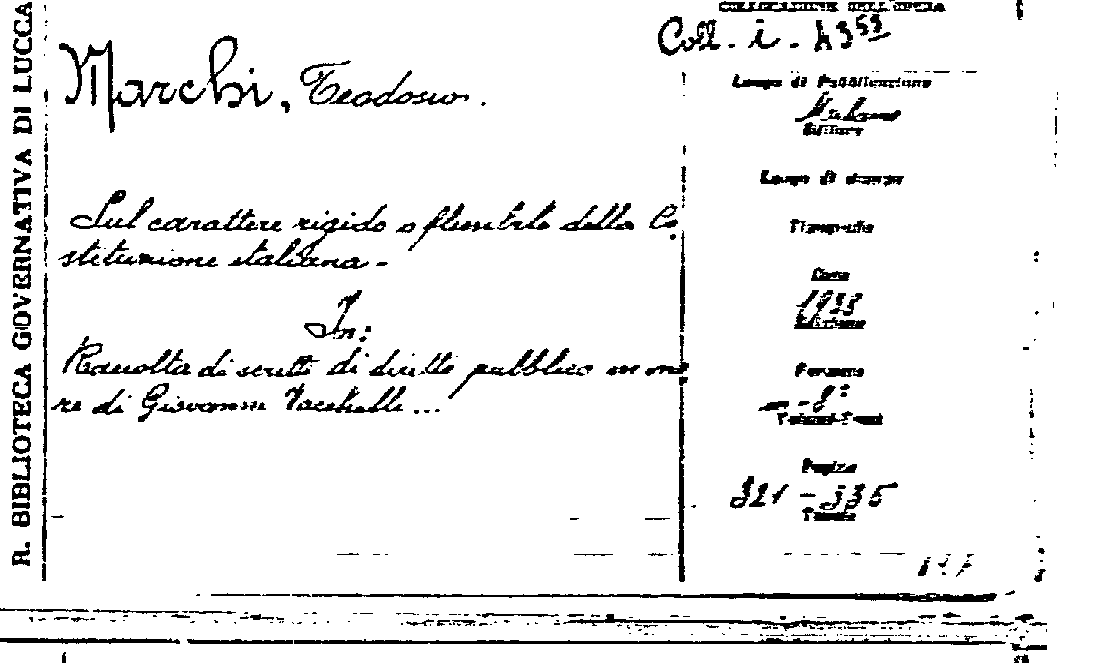 R. BIBLIOTECA GOVERNATIVA DI LUCCA
COLLOCAZIONE DELL'OPERA
Coll. i. 43⁵⁹
Marchi, Teodosio.
Sul carattere rigido o flessibile della Co
stituzione italiana -
In:
Raccolta di scritti di diritto pubblico in ono
re di Giovanni Vacchelli...
Luogo di Pubblicazione
Milano
Editore
Luogo di stampa
Tipografia
Data
1938
Edizione
Formato
- 8°
Pagine
321 - 335